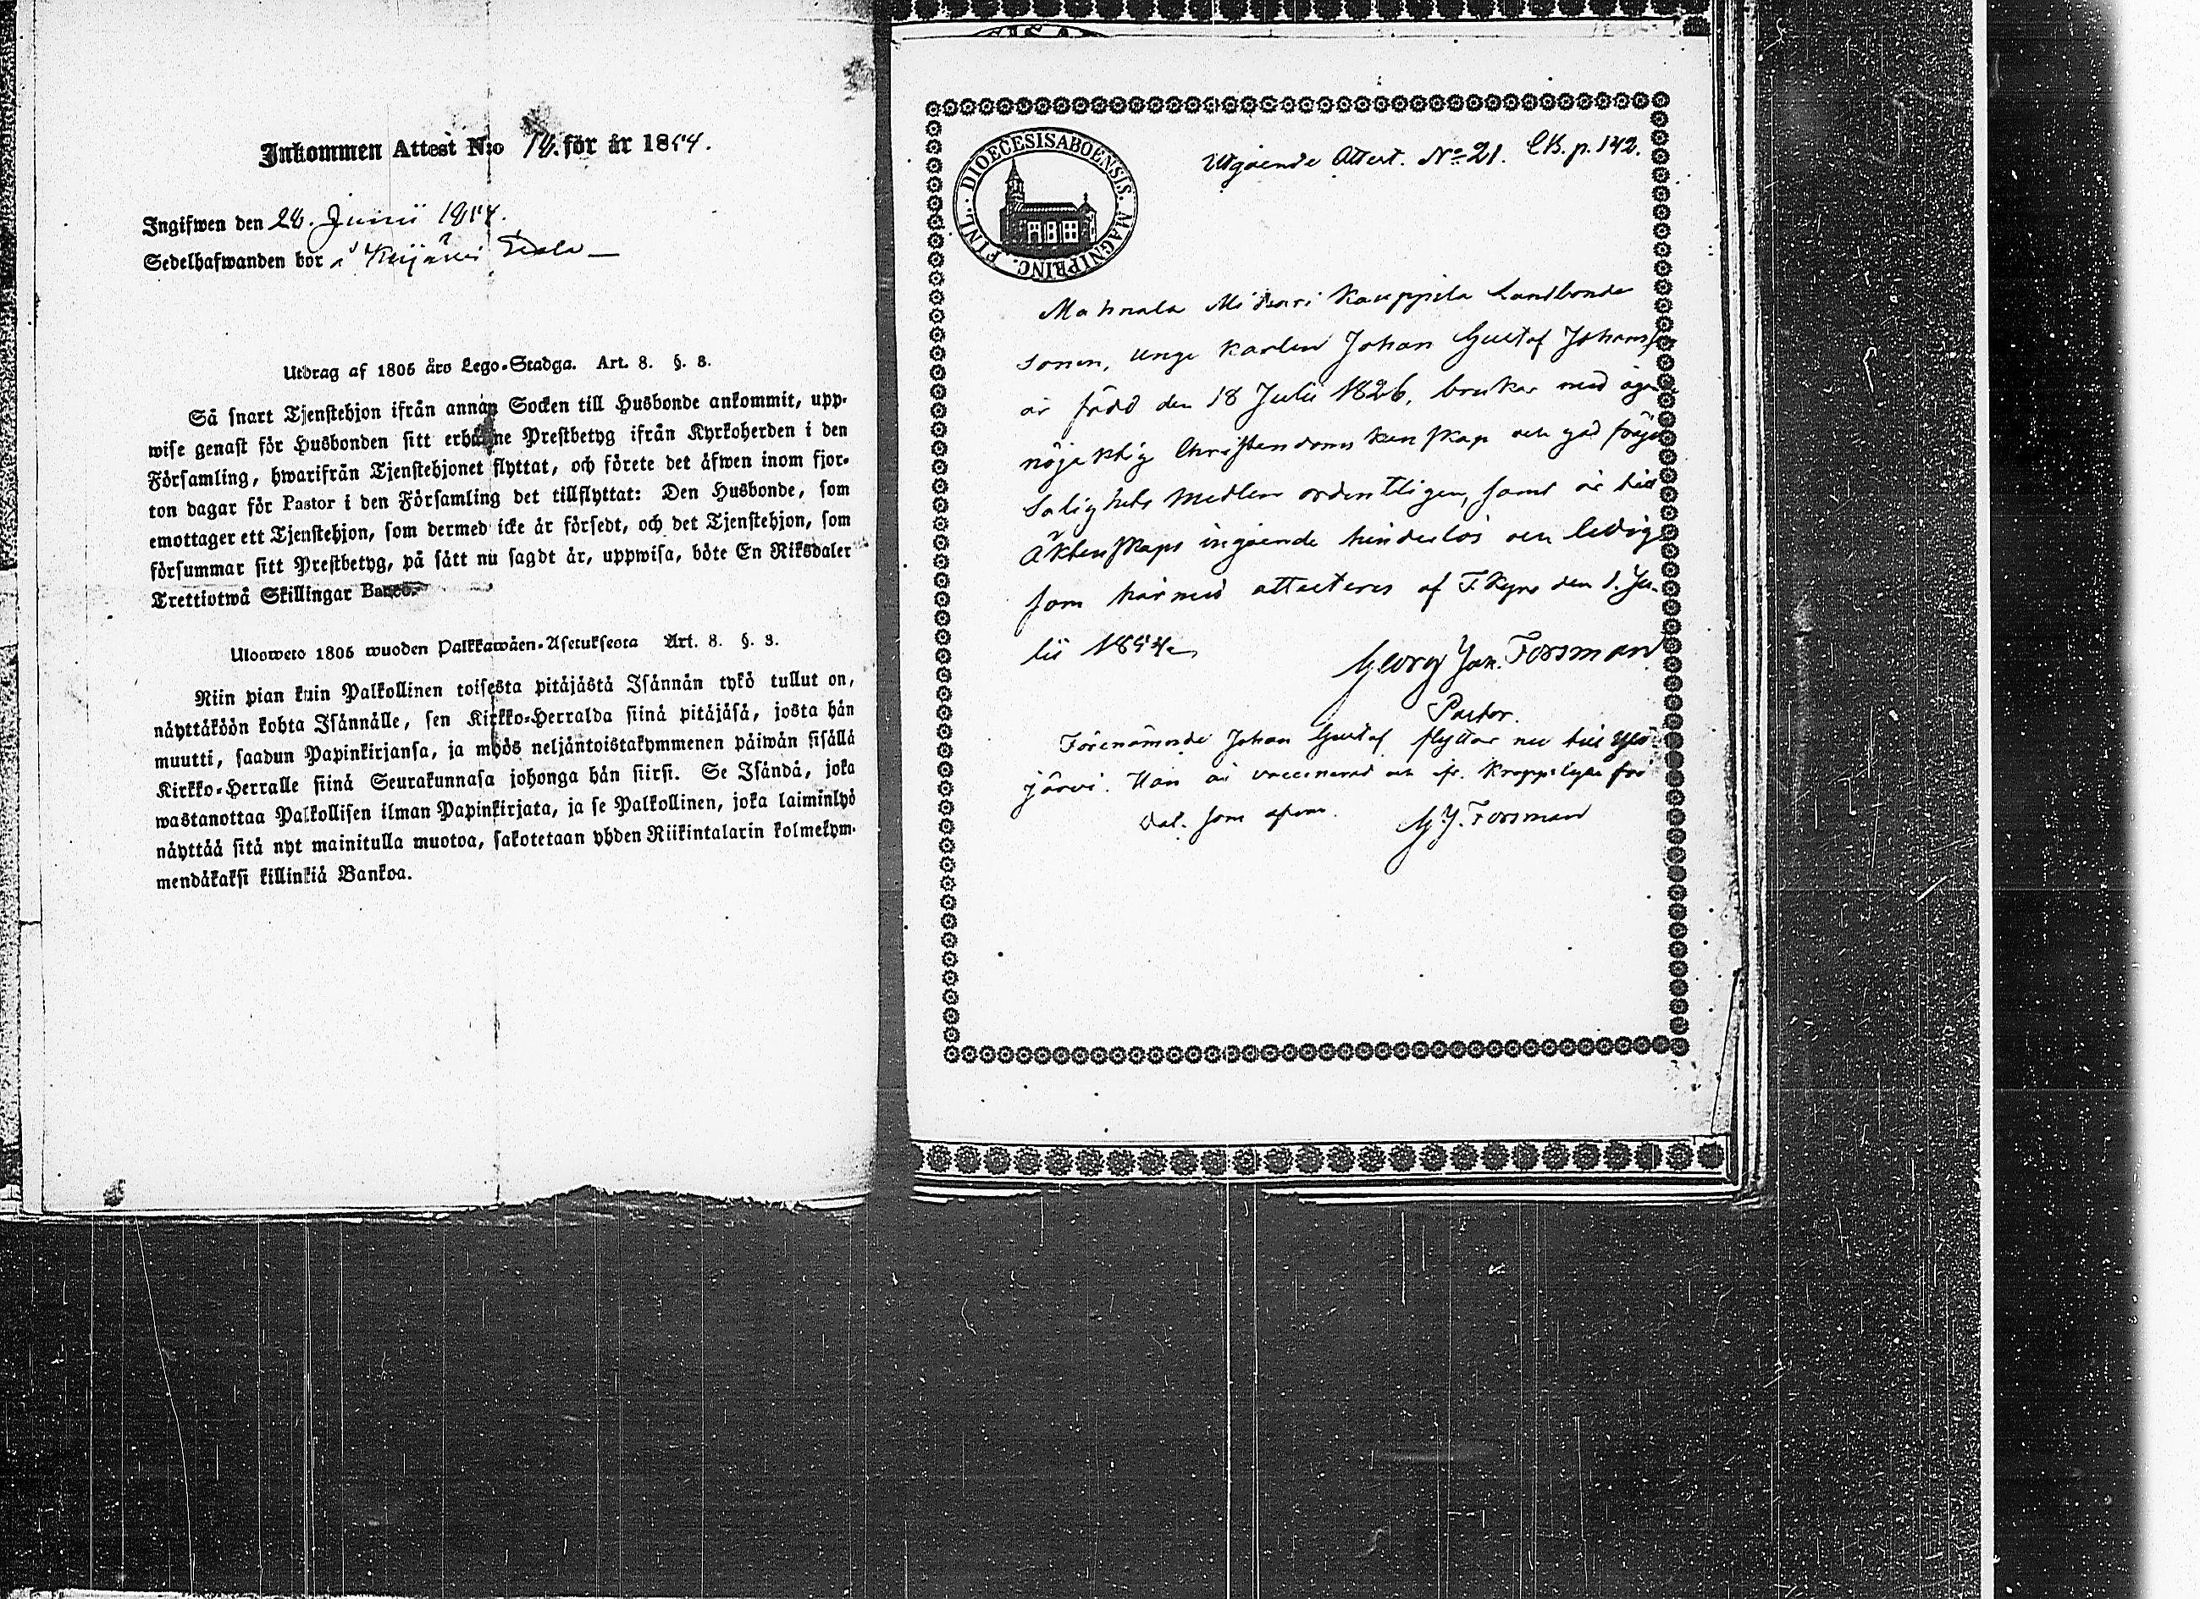 Inkommen Attest N:o 18. för år 1854.
Ingifwen den 28. Junii 1854.
Sedelhafwanden bor å
Utdrag af 1805 års Lego-Stadga. Art. 8. §. 8.
Så snart Tjenstehjon ifrån annan Socken till Husbonde ankommit, upp-
wise genast för Husbonden sitt erhållne Prestbetyg ifrån Kyrkoherden i den
Församling, hwarifrån Tjenstehjonet flyttat, och förete det äfwen inom fjor-
ton dagar för Pastor i den Församling det tillflyttat: Den Husbonde, som
emottager ett Tjenstehjon, som dermed icke är försedt, och det Tjenstehjon, som
försummar sitt Prestbetyg, på sätt nu sagdt är, uppwisa, böte En Riksdaler
Trettiotwå Skillingar Banco.
Ulosweto 1805 wuoden Palkkawäen-Asetuksesta Art. 8. §. 8.
Niin pian kuin Palkollinen toisesta pitäjästä Isännän tykö tullut on,
näyttäköön kohta Isännälle, sen Kirkko-Herralda siinä pitäjäsä, josta hän
muutti, saadun Papinkirjansa, ja myös neljäntoistakymmenen päiwän sisällä
Kirkko-Herralle siinä Seurakunnasa johonga hän siirsi. Se Isändä, joka
wastanottaa Palkollisen ilman Papinkirjata, ja se Palkollinen, joka laiminlyö
näyttää sitä nyt mainitulla muotoa, sakotetaan yhden Riikintalarin kolmekym-
mendäkaksi killinkiä Bankoa.
DIOECESIS ABOENSIS. MAGNI PRINC. FINL.
Utgående Attest. No 21. CB. p. 142.
Mahnala Mikkari Kauppila Landbonde
sonen, unge karlen Johan Gustaf Johansson
är född den 18 Julii 1826, brukar med äger
nöjaktig Christendoms kunskap och god fräjd
Salighets Medlen ordentligen, samt är till
Äktenskaps ingående hinderlös och ledig
som härmed attesteras af T. Kyro den 1. Ju-
lii 1854
Georg Jak. Forsman
Pastor.
Förenämnde Johan Gustaf flyttar nu till Ylö
järvi. Han är vaccinerad och fr. kroppslyte fri
Dat. som ofvan. G. J. Forsman